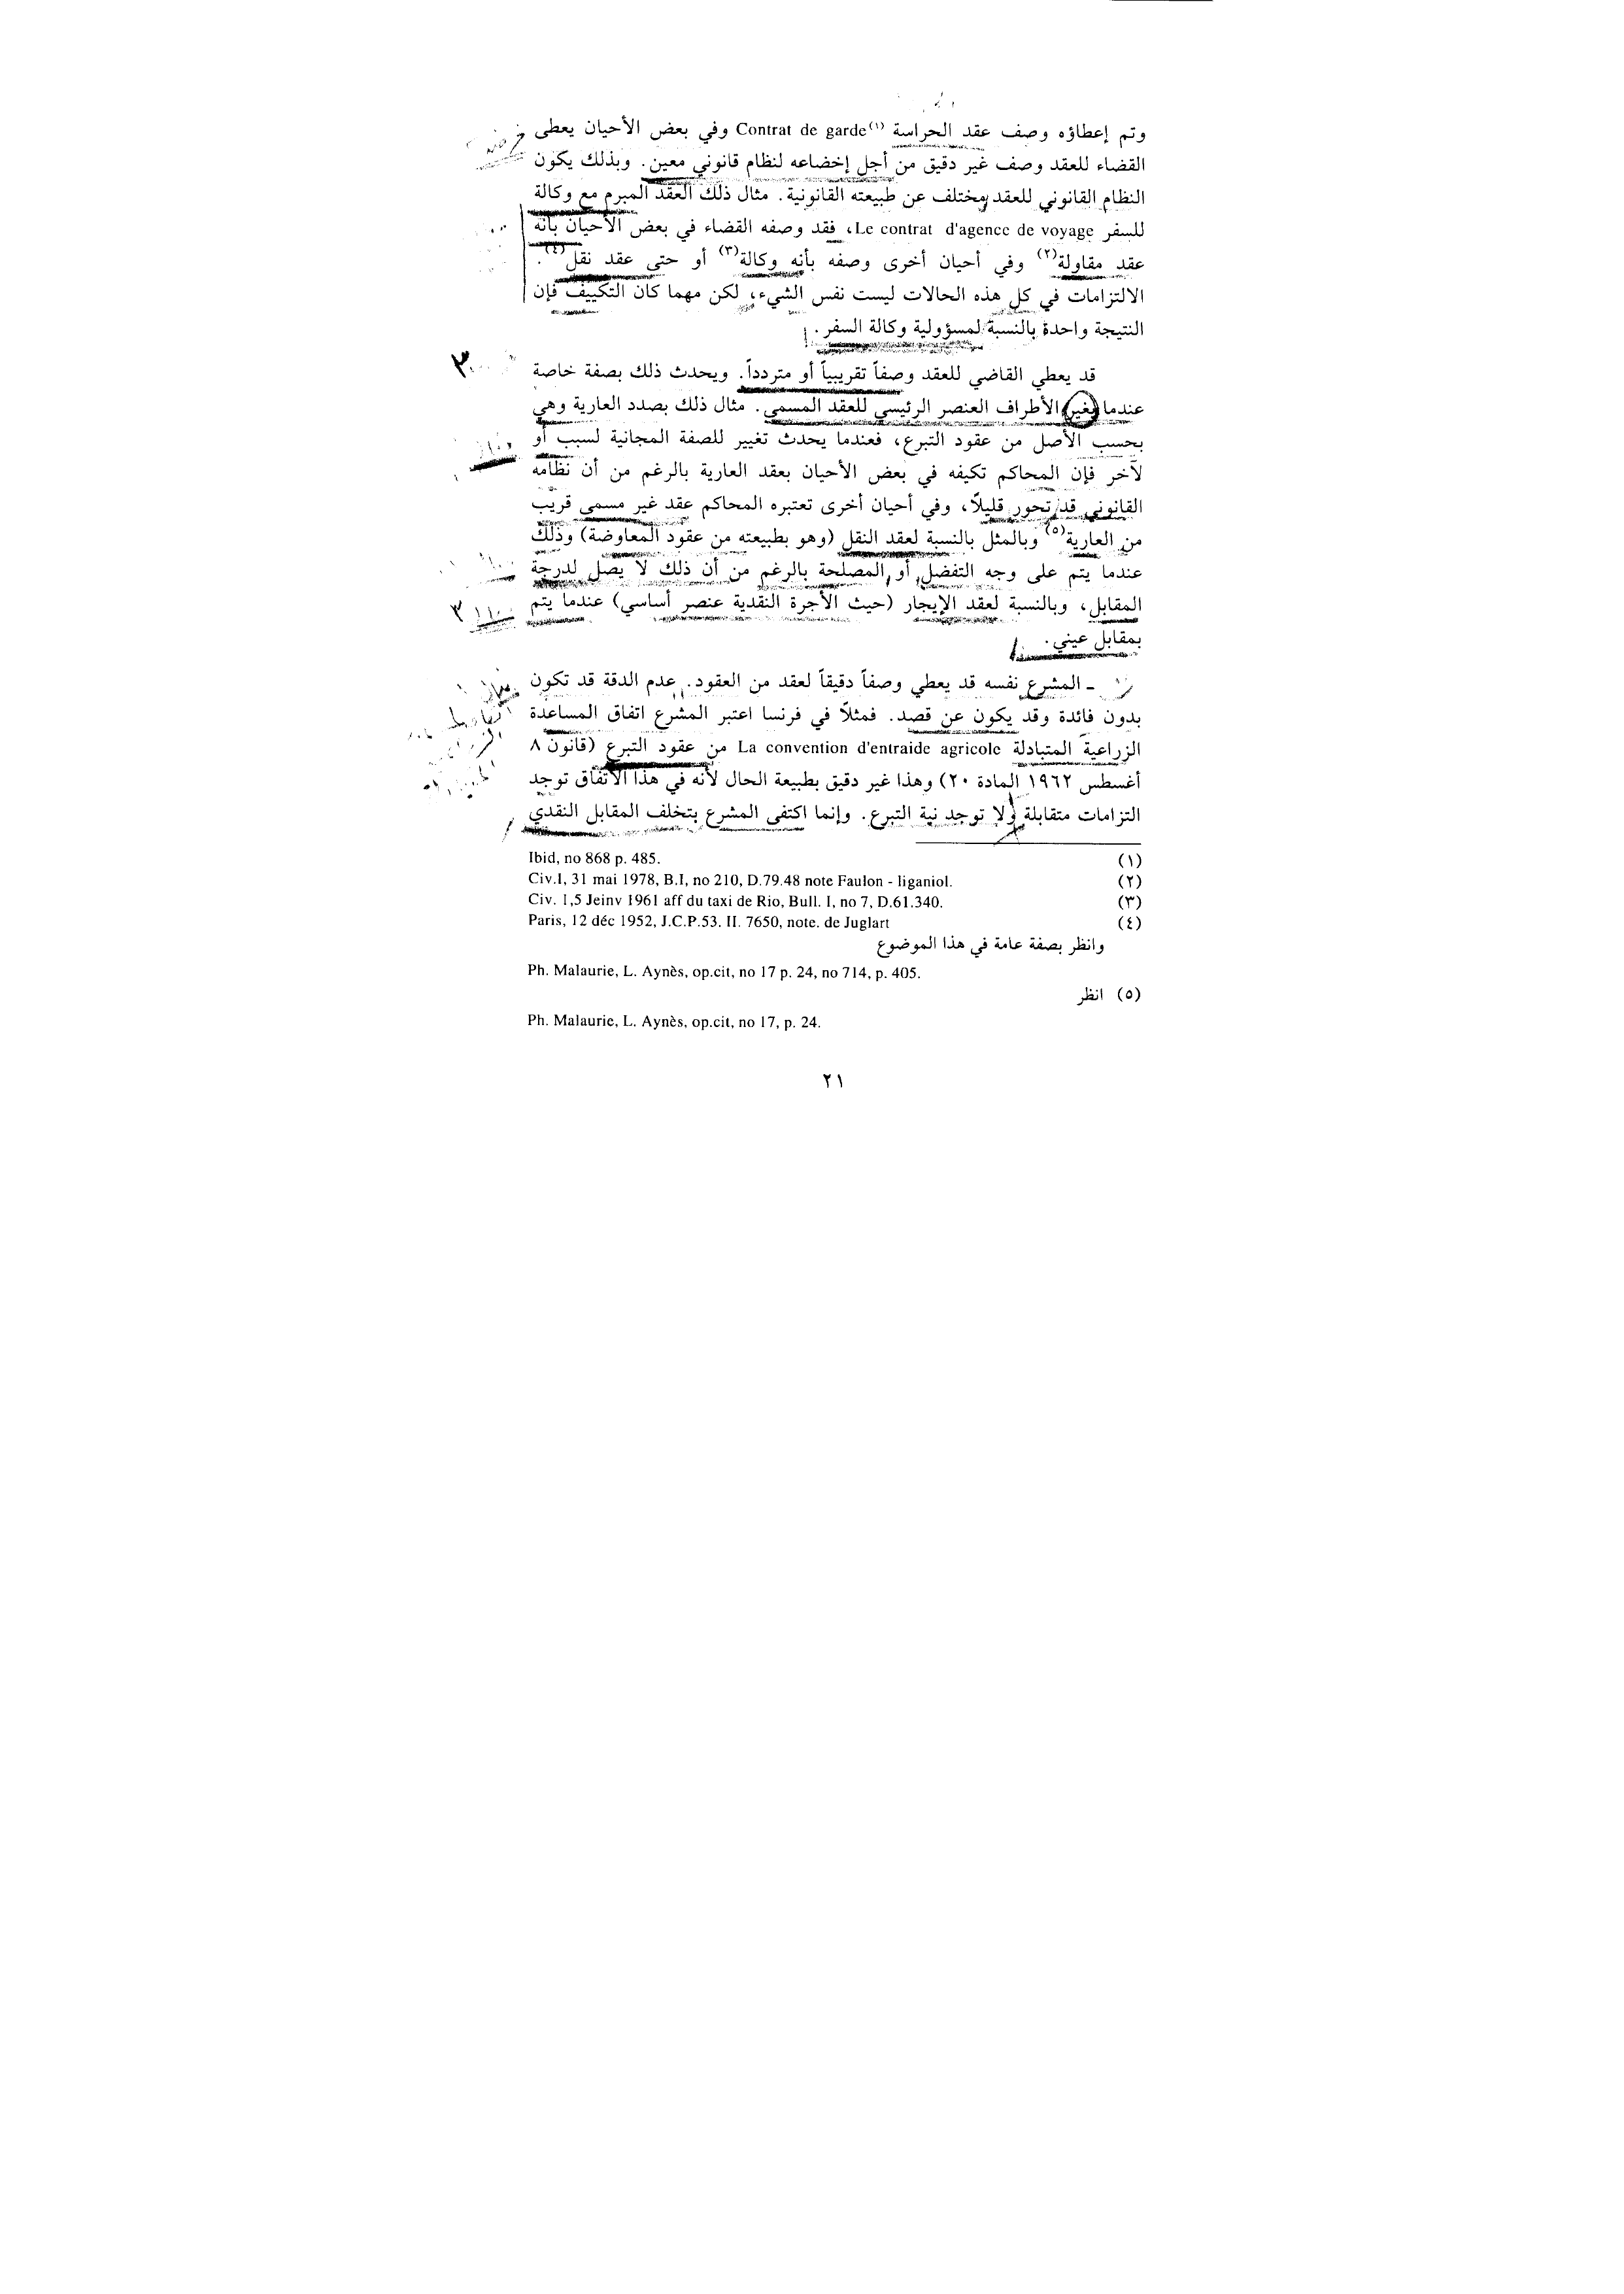 وتم إعطاؤه وصف عقد الحراسة Contrat de garde(١) وفي بعض الأحيان يعطى
القضاء للعقد وصف غير دقيق من أجل إخضاعه لنظام قانوني معين. وبذلك يكون
النظام القانوني للعقد مختلف عن طبيعته القانونية. مثال ذلك العقد المبرم مع وكالة
للسفر Le contrat d'agence de voyage، فقد وصفه القضاء في بعض الأحيان بأنه
عقد مقاولة(٢) وفي أحيان أخرى وصفه بأنه وكالة(٣) أو حتى عقد نقل(٤).
الالتزامات في كل هذه الحالات ليست نفس الشيء، لكن مهما كان التكييف فإن
النتيجة واحدة بالنسبة لمسؤولية وكالة السفر.
٣
قد يعطي القاضي للعقد وصفاً تقريبياً أو متردداً. ويحدث ذلك بصفة خاصة
عندما يغير الأطراف العنصر الرئيسي للعقد المسمى. مثال ذلك بصدد العارية وهي
بحسب الأصل من عقود التبرع، فعندما يحدث تغيير للصفة المجانية لسبب أو
لآخر فإن المحاكم تكيفه في بعض الأحيان بعقد العارية بالرغم من أن نظامه
القانوني قد تحور قليلاً، وفي أحيان أخرى تعتبره المحاكم عقد غير مسمى قريب
من العارية(٥) وبالمثل بالنسبة لعقد النقل (وهو بطبيعته من عقود المعاوضة) وذلك
عندما يتم على وجه التفضل أو المصلحة بالرغم من أن ذلك لا يصل لدرجة
المقابل، وبالنسبة لعقد الإيجار (حيث الأجرة النقدية عنصر أساسي) عندما يتم
بمقابل عيني.
ـ المشرع نفسه قد يعطي وصفاً دقيقاً لعقد من العقود. عدم الدقة قد تكون
بدون فائدة وقد يكون عن قصد. فمثلاً في فرنسا اعتبر المشرع اتفاق المساعدة
الزراعية المتبادلة La convention d'entraide agricole من عقود التبرع (قانون ٨
أغسطس ١٩٦٢ المادة ٢٠) وهذا غير دقيق بطبيعة الحال لأنه في هذا الاتفاق توجد
التزامات متقابلة ولا توجد نية التبرع. وإنما اكتفى المشرع بتخلف المقابل النقدي
(١) Ibid, no 868 p. 485.
(٢) Civ.I, 31 mai 1978, B.I, no 210, D.79.48 note Faulon - liganiol.
(٣) Civ. 1,5 Jeinv 1961 aff du taxi de Rio, Bull. I, no 7, D.61.340.
(٤) Paris, 12 déc 1952, J.C.P.53. II. 7650, note. de Juglart
وانظر بصفة عامة في هذا الموضوع
Ph. Malaurie, L. Aynès, op.cit, no 17 p. 24, no 714, p. 405.
(٥) انظر
Ph. Malaurie, L. Aynès, op.cit, no 17, p. 24.
٢١